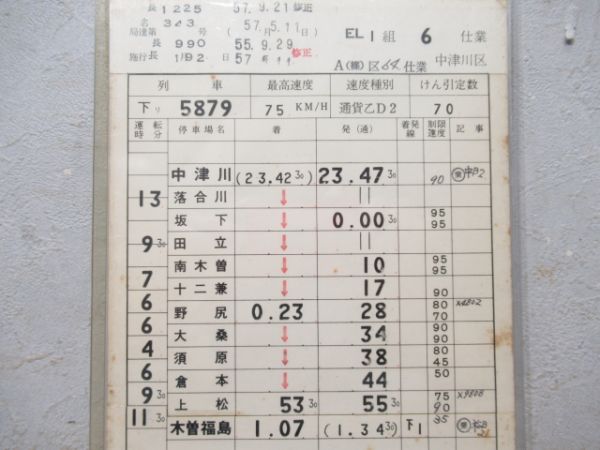 長 1225 57.9.21 修正
名 343
局達第 号 (57年5月11日)
長 990 55.9.29 修正
施行 長 192 日 57
EL 1 組 6 仕業
A 区 64 仕業 中津川区
列車 最高速度 速度種別 けん引定数
下り 5879 75 KM/H 通貨乙D2 70
運転時分 停車場名 着 発(通) 着発線 制限速度 記事
中津川 (23.42 30) 23.47 30 90
13 落合川 ↓ ||
坂下 ↓ 0.00 30 95 95
9 30 田立 ↓ ||
南木曽 ↓ 10 95 95
7 十二兼 ↓ 17 90
6 野尻 0.23 28 80 70 ×4802
6 大桑 ↓ 34 90 90
4 須原 ↓ 38 80 45
6 倉本 ↓ 44 50
9 30 上松 53 30 55 30 75 90 ×9808
11 30 木曽福島 1.07 (1.34 30) 下1 85